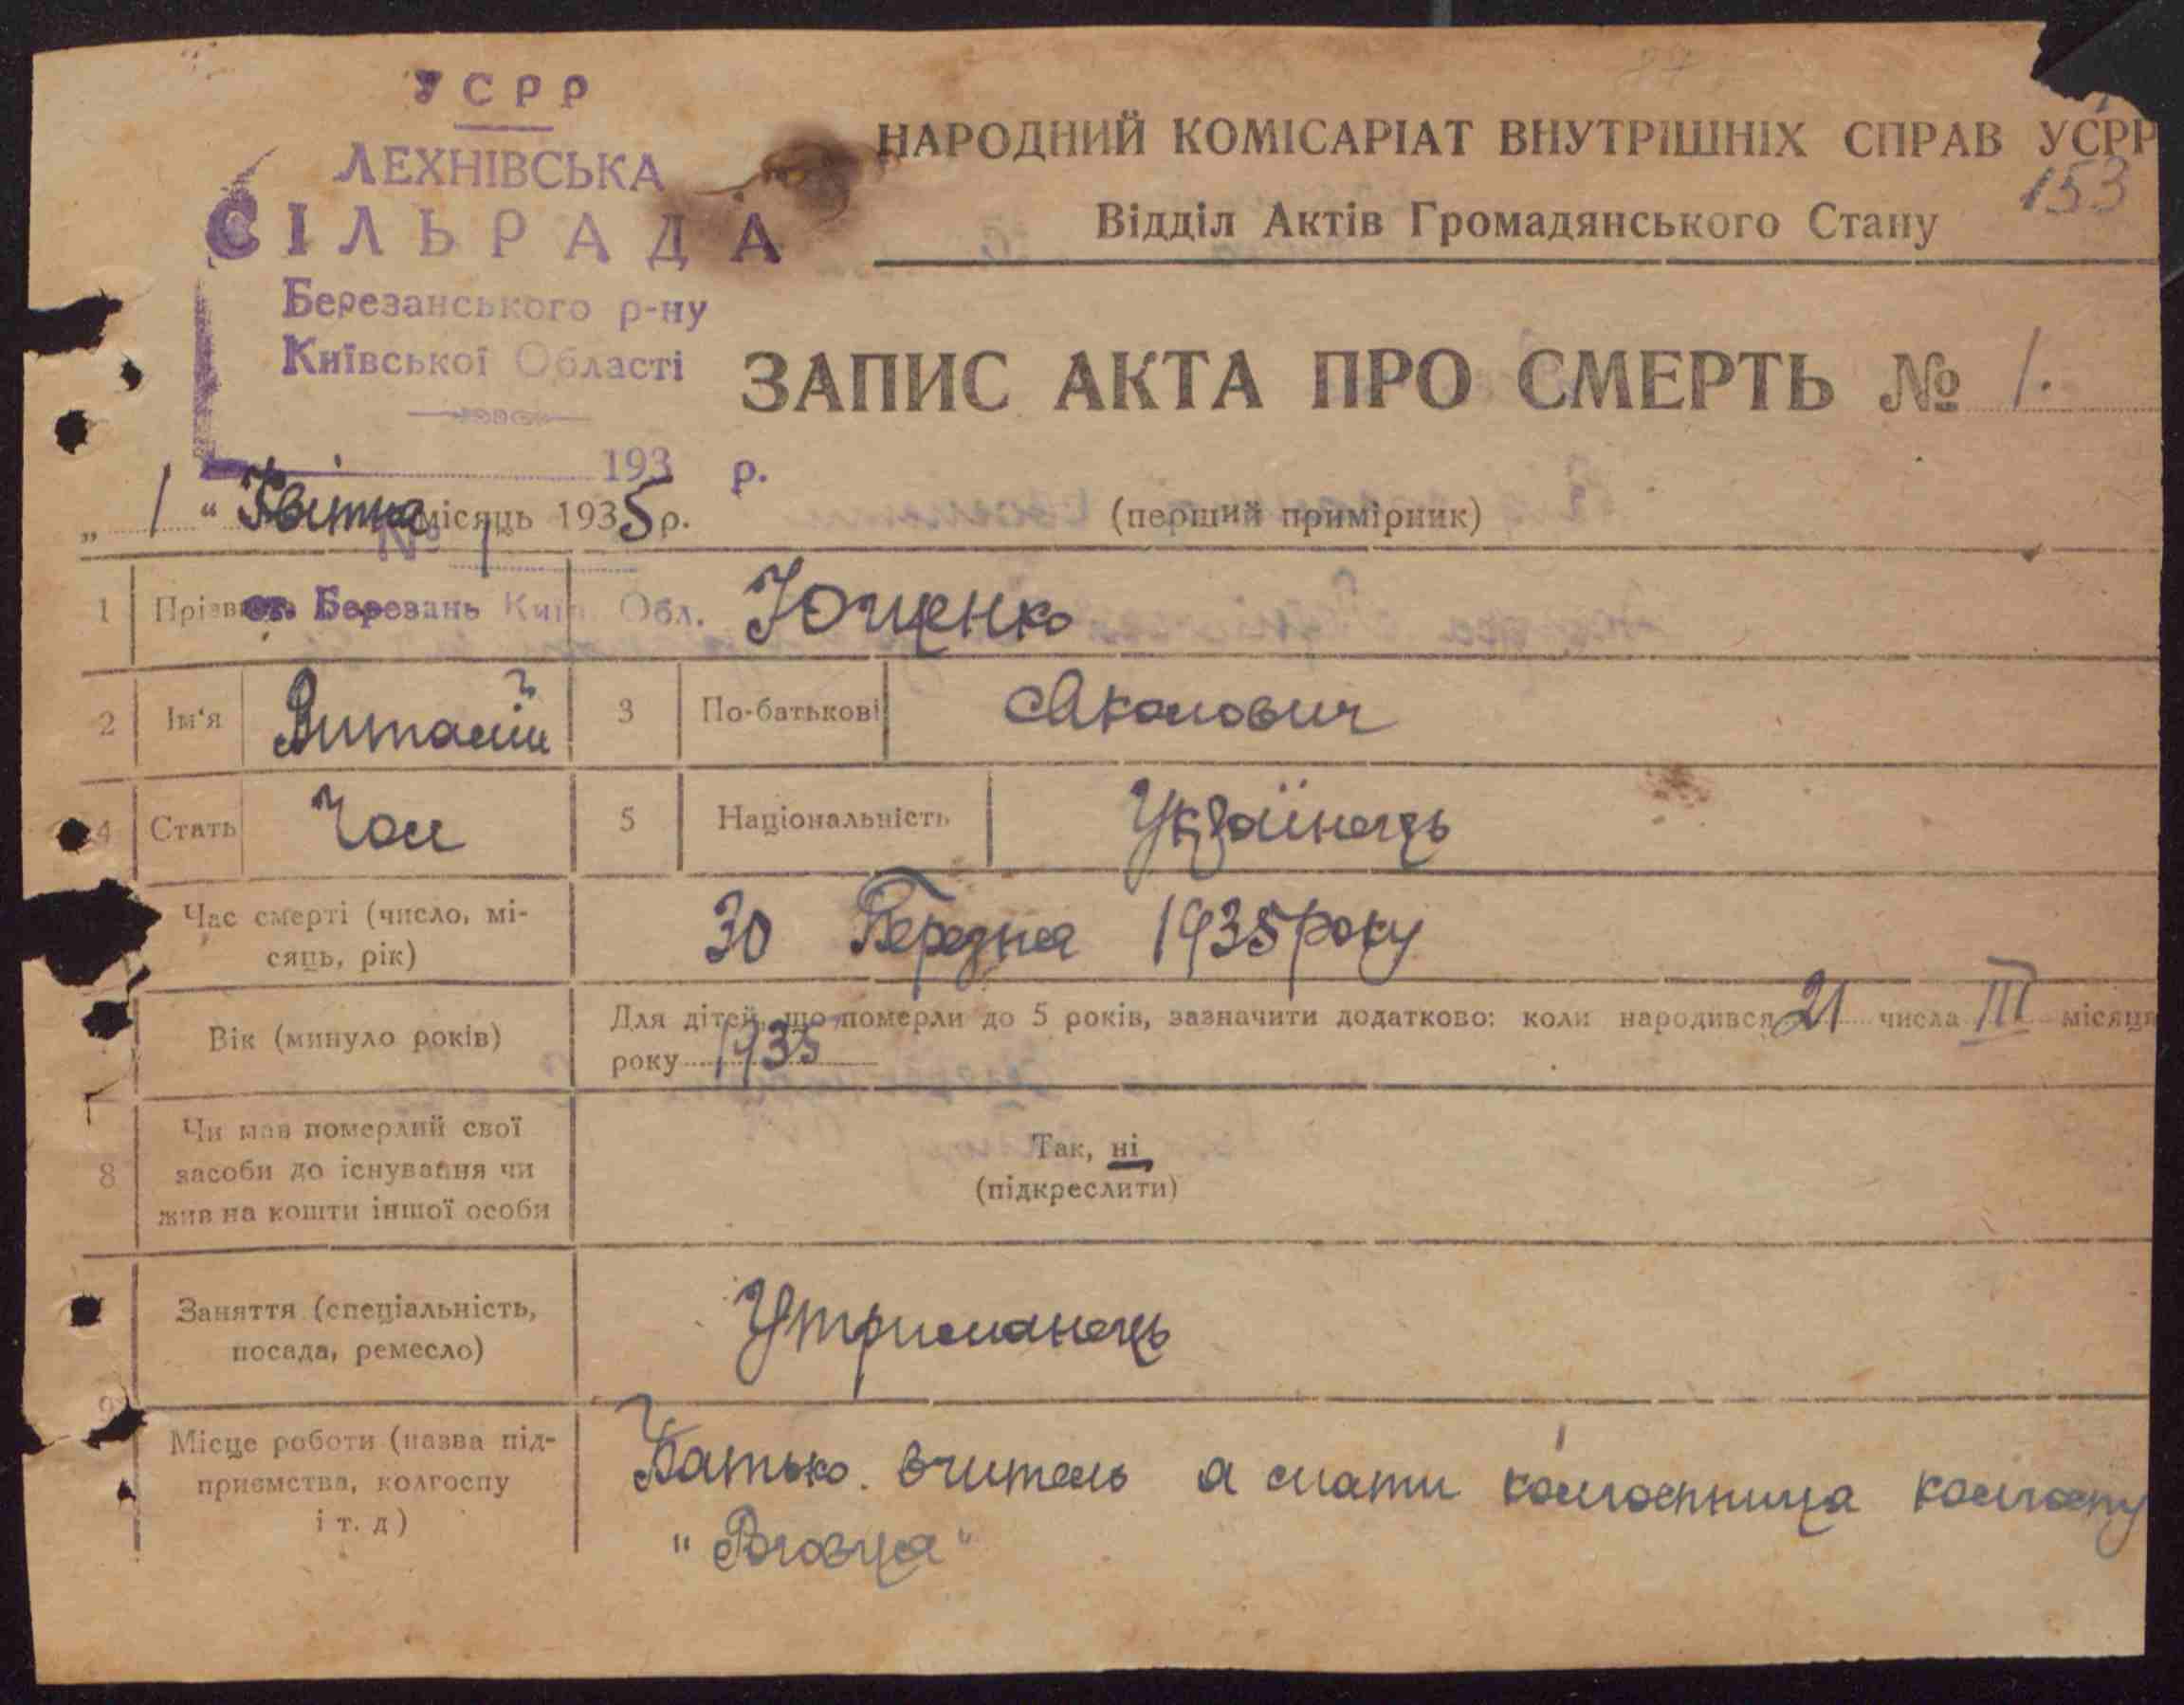 УСРР
ЛЕХНІВСЬКА
СІЛЬРАДА
Березанського р-ну
Київської Області
193 р.
№ 1
ст. Березань Київ. Обл.
НАРОДНИЙ КОМІСАРІАТ ВНУТРІШНІХ СПРАВ УСРР
153
Відділ Актів Громадянського Стану
ЗАПИС АКТА ПРО СМЕРТЬ № 1.
„ 1 “ Квітня місяць 1935 р.
(перший примірник)
1 Прізвище Ющенко
2 Ім'я Виталій 3 По-батькові
4 Стать Чол 5 Національність Українець
Час смерті (число, мі-
сяць, рік) 30 Березня 1935 року
Вік (минуло років) Для дітей, що померли до 5 років, зазначити додатково: коли народився 21 числа III місяця
року 1935
8 Чи мав померлий свої
засоби до існування чи
жив на кошти іншої особи
Так, ні
(підкреслити)
Заняття (спеціальність,
посада, ремесло) Утриманець
9
Місце роботи (назва під-
приємства, колгоспу
і т. д)
Батько. вчитель а мати колгоспниця колгоспу